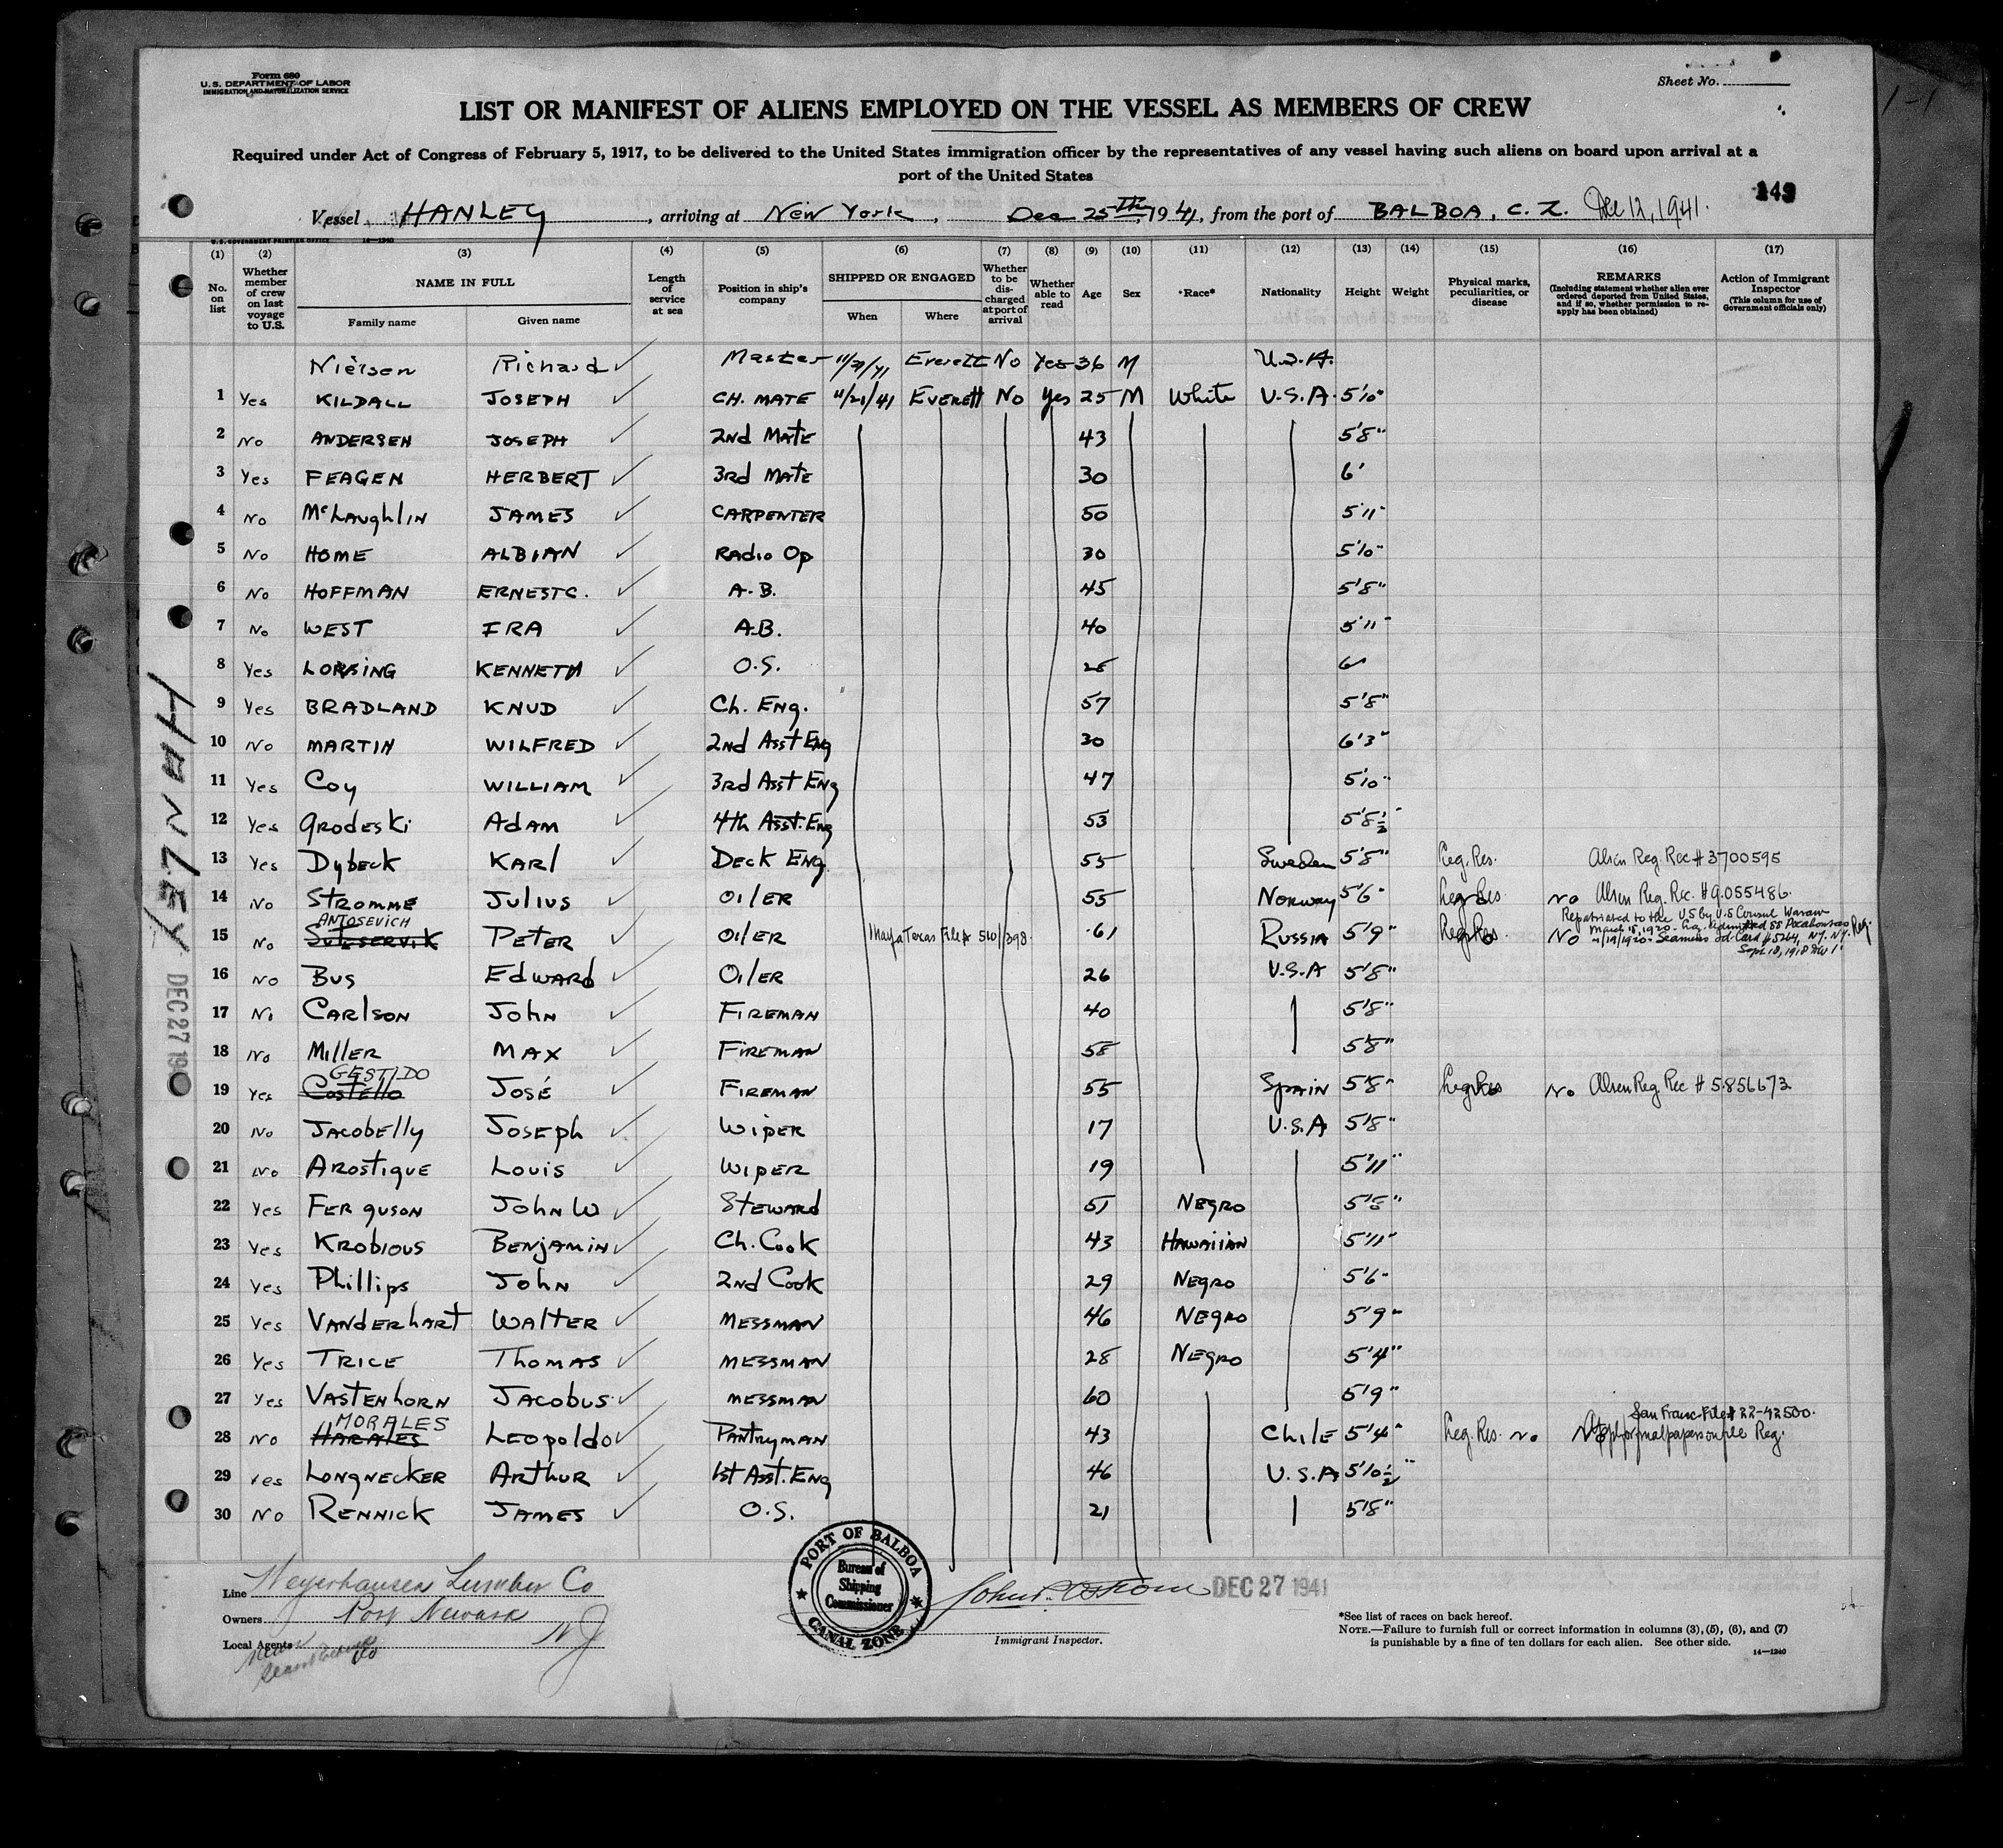 Form 680
U. S. DEPARTMENT OF LABOR
IMMIGRATION AND NATURALIZATION SERVICE
Sheet No.
1-1
LIST OR MANIFEST OF ALIENS EMPLOYED ON THE VESSEL AS MEMBERS OF CREW
Required under Act of Congress of February 5, 1917, to be delivered to the United States immigration officer by the representatives of any vessel having such aliens on board upon arrival at a
port of the United States
Vessel HANLEY, arriving at New York, Dec 25th, 1941, from the port of BALBOA, C. Z. Dec 12, 1941.
U. S. GOVERNMENT PRINTING OFFICE 14—1240
(1) (2) (3) (4) (5) (6) (7) (8) (9) (10) (11) (12) (13) (14) (15) (16) (17)
No. on list
Whether member of crew on last voyage to U.S.
NAME IN FULL
Family name Given name
Length of service at sea
Position in ship's company
SHIPPED OR ENGAGED
When Where
Whether to be discharged at port of arrival
Whether able to read
Age
Sex
*Race*
Nationality
Height
Weight
Physical marks, peculiarities, or disease
REMARKS
(Including statement whether alien ever ordered deported from United States, and if so, whether permission to reapply has been obtained)
Action of Immigrant Inspector
(This column for use of Government officials only)
Nielsen Richard Master Everett No Yes 36 M U.S.A.
1 Yes KILDALL JOSEPH CH. MATE 11/21/41 EVERETT No Yes 25 M White U.S.A. 5'10"
2 No ANDERSEN JOSEPH 2nd MATE 43 5'8"
3 Yes FEAGEN HERBERT 3rd MATE 30 6'
4 No McLaughlin JAMES CARPENTER 50 5'11"
5 No HOME ALBIAN RADIO Op 30 5'10"
6 No HOFFMAN ERNEST C. A.B. 45 5'8"
7 No WEST IRA A.B. 40 5'11"
8 Yes KENNETH O.S. 25 6'
9 Yes BRADLAND KNUD Ch. Eng. 57 5'8"
10 No MARTIN WILFRED 2nd Asst Eng 30 6'3"
11 Yes Coy WILLIAM 3rd Asst Eng 47 5'10"
12 Yes Grodeski ADAM 4th Asst. Eng 53 5'8½"
13 Yes Dybeck KARL DECK ENG. 55 Sweden 5'8" Leg. Res. Alien Reg. Rec # 3700595
14 No STROMME JULIUS OILER 55 NORWAY 5'6" Leg Res. No Alien Reg. Rec. # 9055486
ANTOSEVICH
15 No PETER OILER File # 510/398 61 RUSSIA 5'9" Leg Res. No
Repatriated to the U S by U.S Consul Warsaw
March 15, 1920 - Leg. Admitted SS Pocahontas Reg.
4/19/1920 - Seamens Id-Card # 5264, N.Y. N.Y.
Sept. 18, 1918
16 No BUS EDWARD OILER 26 U.S.A 5'8"
17 No CARLSON JOHN FIREMAN 40 5'8"
18 No MILLER MAX FIREMAN 58 5'8"
GESTIDO
19 Yes Costello JOSÉ FIREMAN 55 SPAIN 5'8" Leg Res No Alien Reg Rec # 5856673
20 No JACOBELLY JOSEPH WIPER 17 U.S.A 5'8"
21 No AROSTIQUE LOUIS WIPER 19 5'11"
22 Yes FERGUSON JOHN W STEWARD 51 NEGRO
23 Yes KROBIOUS BENJAMIN Ch. Cook 43 HAWAIIAN 5'11"
24 Yes Phillips JOHN 2nd Cook 29 NEGRO 5'6"
25 Yes VANDERHART WALTER MESSMAN 46 NEGRO 5'9"
26 Yes TRICE THOMAS MESSMAN 28 NEGRO 5'4"
27 Yes VASTENHORN JACOBUS MESSMAN 60 5'9"
MORALES San Franc. File # 22-42500.
28 No HARALES LEOPOLDO PANTRYMAN 43 Chile 5'4" Leg. Res. No
29 Yes LONGNECKER ARTHUR 1st Asst. Eng 46 U.S.A 5'10½"
30 No RENNICK JAMES O.S. 21 5'8"
HANLEY
DEC 27
Line Weyerhauser Lumber Co
Owners Port Newark
Local Agents N J
PORT OF BALBOA
Bureau of
Shipping
Commissioner
CANAL ZONE
DEC 27 1941
Immigrant Inspector.
*See list of races on back hereof.
NOTE.—Failure to furnish full or correct information in columns (3), (5), (6), and (7)
is punishable by a fine of ten dollars for each alien. See other side.
14—1240